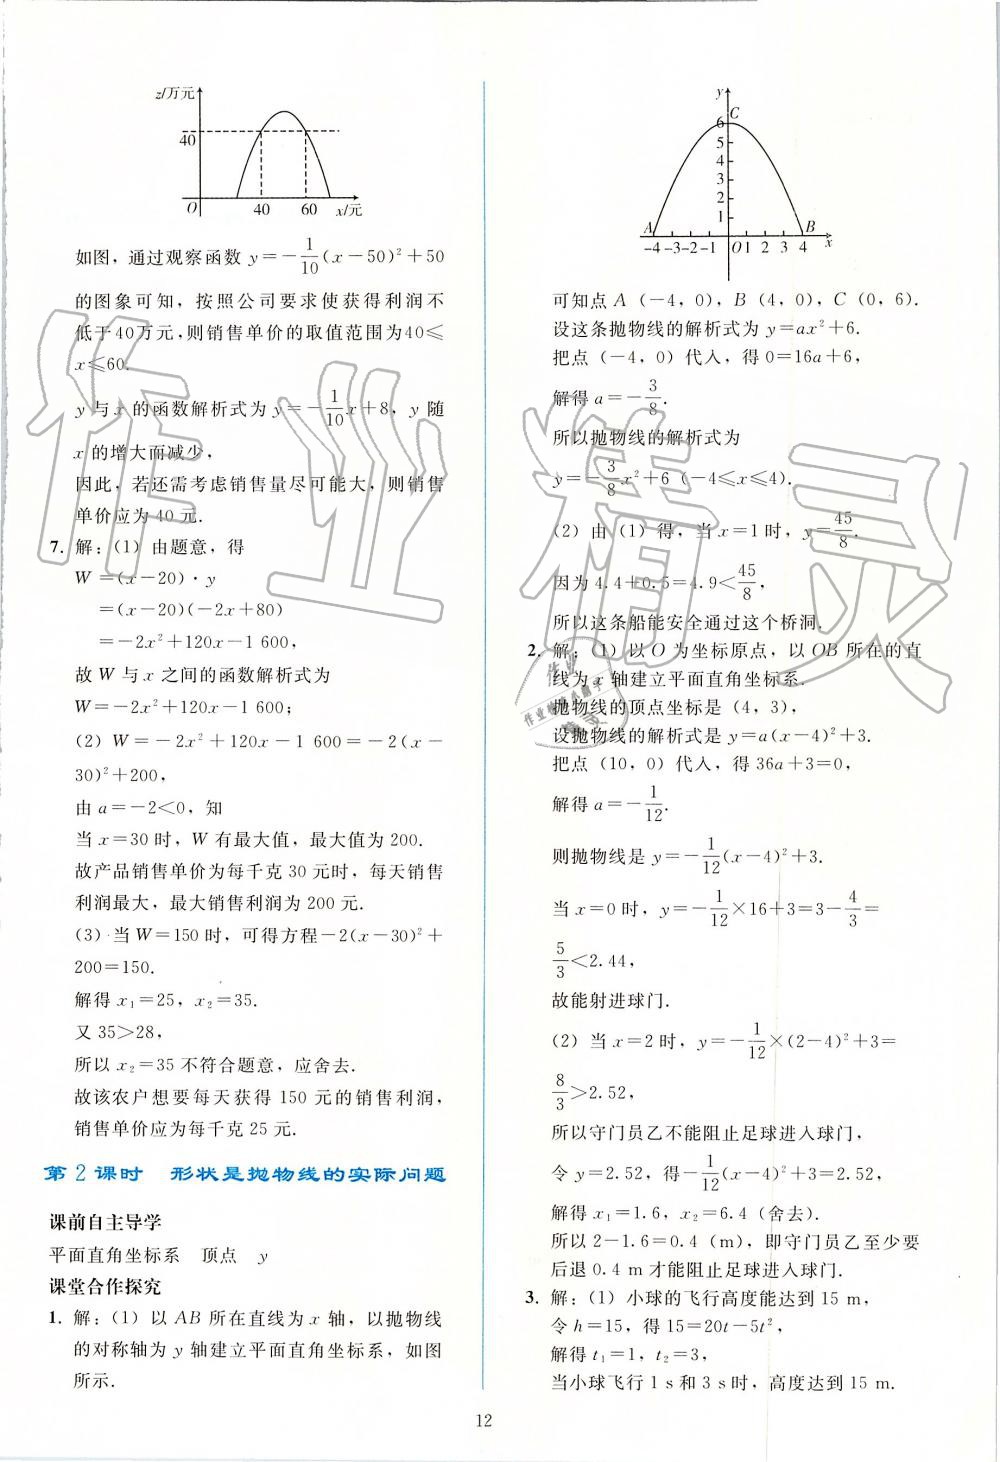 z/万元
40
O
40
60
x/元
如图，通过观察函数 y=−1/10(x−50)²+50
的图象可知，按照公司要求使获得利润不
低于40万元，则销售单价的取值范围为40≤
x≤60.
y 与 x 的函数解析式为 y=−1/10x+8，y 随
x 的增大而减少，
因此，若还需考虑销售量尽可能大，则销售
单价应为 40 元.
7. 解：(1) 由题意，得
W=(x−20)·y
=(x−20)(−2x+80)
=−2x²+120x−1 600，
故 W 与 x 之间的函数解析式为
W=−2x²+120x−1 600；
(2) W=−2x²+120x−1 600=−2(x−
30)²+200，
由 a=−2<0，知
当 x=30 时，W 有最大值，最大值为 200.
故产品销售单价为每千克 30 元时，每天销售
利润最大，最大销售利润为 200 元.
(3) 当 W=150 时，可得方程−2(x−30)²+
200=150.
解得 x₁=25，x₂=35.
又 35>28，
所以 x₂=35 不符合题意，应舍去.
故该农户想要每天获得 150 元的销售利润，
销售单价应为每千克 25 元.
第 2 课时 形状是抛物线的实际问题
课前自主导学
平面直角坐标系 顶点 y
课堂合作探究
1. 解：(1) 以 AB 所在直线为 x 轴，以抛物线
的对称轴为 y 轴建立平面直角坐标系，如图
所示.
y
C
6
5
4
3
2
1
A
B
−4 −3 −2 −1 O 1 2 3 4 x
可知点 A (−4，0)，B (4，0)，C (0，6).
设这条抛物线的解析式为 y=ax²+6.
把点 (−4，0) 代入，得 0=16a+6，
解得 a=−3/8.
所以抛物线的解析式为
y=−3/8x²+6 (−4≤x≤4).
(2) 由 (1) 得，当 x=1 时，y=45/8.
因为 4.4+0.5=4.9<45/8，
所以这条船能安全通过这个桥洞.
2. 解：(1) 以 O 为坐标原点，以 OB 所在的直
线为 x 轴建立平面直角坐标系.
抛物线的顶点坐标是 (4，3)，
设抛物线的解析式是 y=a(x−4)²+3.
把点 (10，0) 代入，得 36a+3=0，
解得 a=−1/12.
则抛物线是 y=−1/12(x−4)²+3.
当 x=0 时，y=−1/12×16+3=3−4/3=
5/3<2.44，
故能射进球门.
(2) 当 x=2 时，y=−1/12×(2−4)²+3=
8/3>2.52，
所以守门员乙不能阻止足球进入球门，
令 y=2.52，得−1/12(x−4)²+3=2.52，
解得 x₁=1.6，x₂=6.4 (舍去).
所以 2−1.6=0.4 (m)，即守门员乙至少要
后退 0.4 m才能阻止足球进入球门.
3. 解：(1) 小球的飞行高度能达到 15 m，
令 h=15，得 15=20t−5t²，
解得 t₁=1，t₂=3，
当小球飞行 1 s 和 3 s 时，高度达到 15 m.
12
作业精灵